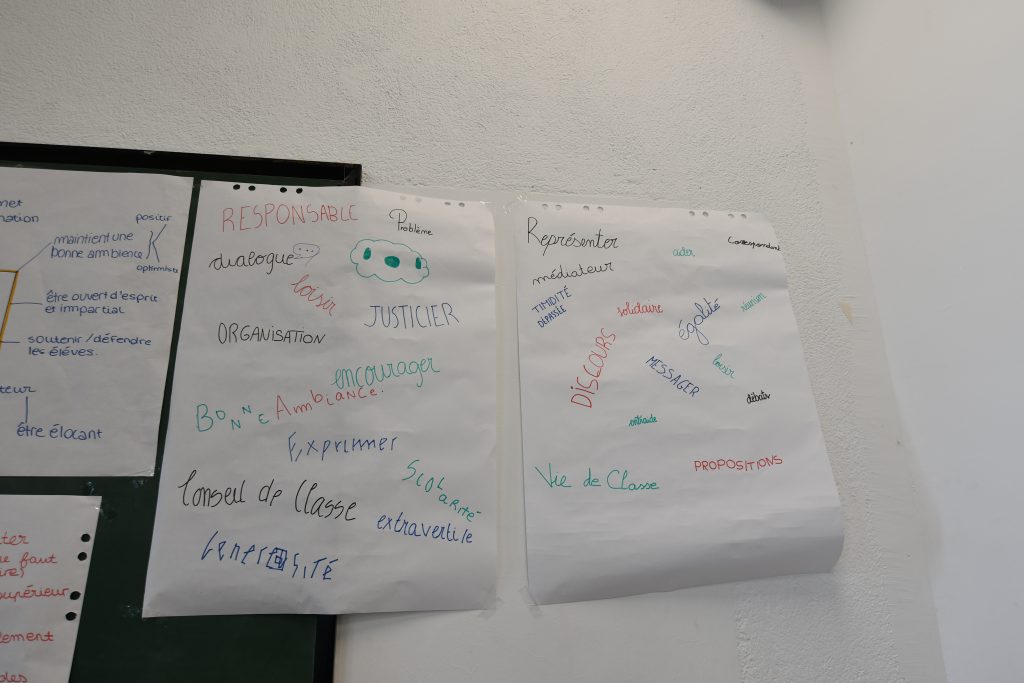 positif
maintient une
bonne ambience
optimiste
être ouvert d'esprit
et impartial
soutenir / défendre
les éléves.
être élocant
faut
supérieur
RESPONSABLE
Problème
dialogue
loisir
JUSTICIER
ORGANISATION
encourager
BONNE AmbiANCE.
Exprimer
SCOLARITÉ
Conseil de Classe
extravertile
GénéroSITÉ
Représenter
Correspondant
aider
médiateur
TIMIDITÉ
DÉPASSÉE
solidaire
égalité
réunion
DISCOURS
MESSAGER
loisir
débats
entraide
Vie de Classe
PROPOSITIONS